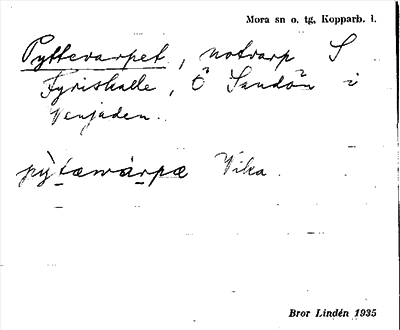 Mora sn o. tg, Kopparb. l.
Pyttevarpet, notvarp S
Fyriskalle, Ö Sandön i
Venjaden.
pỳtæwàrpæ Vika.
Bror Lindén 1935